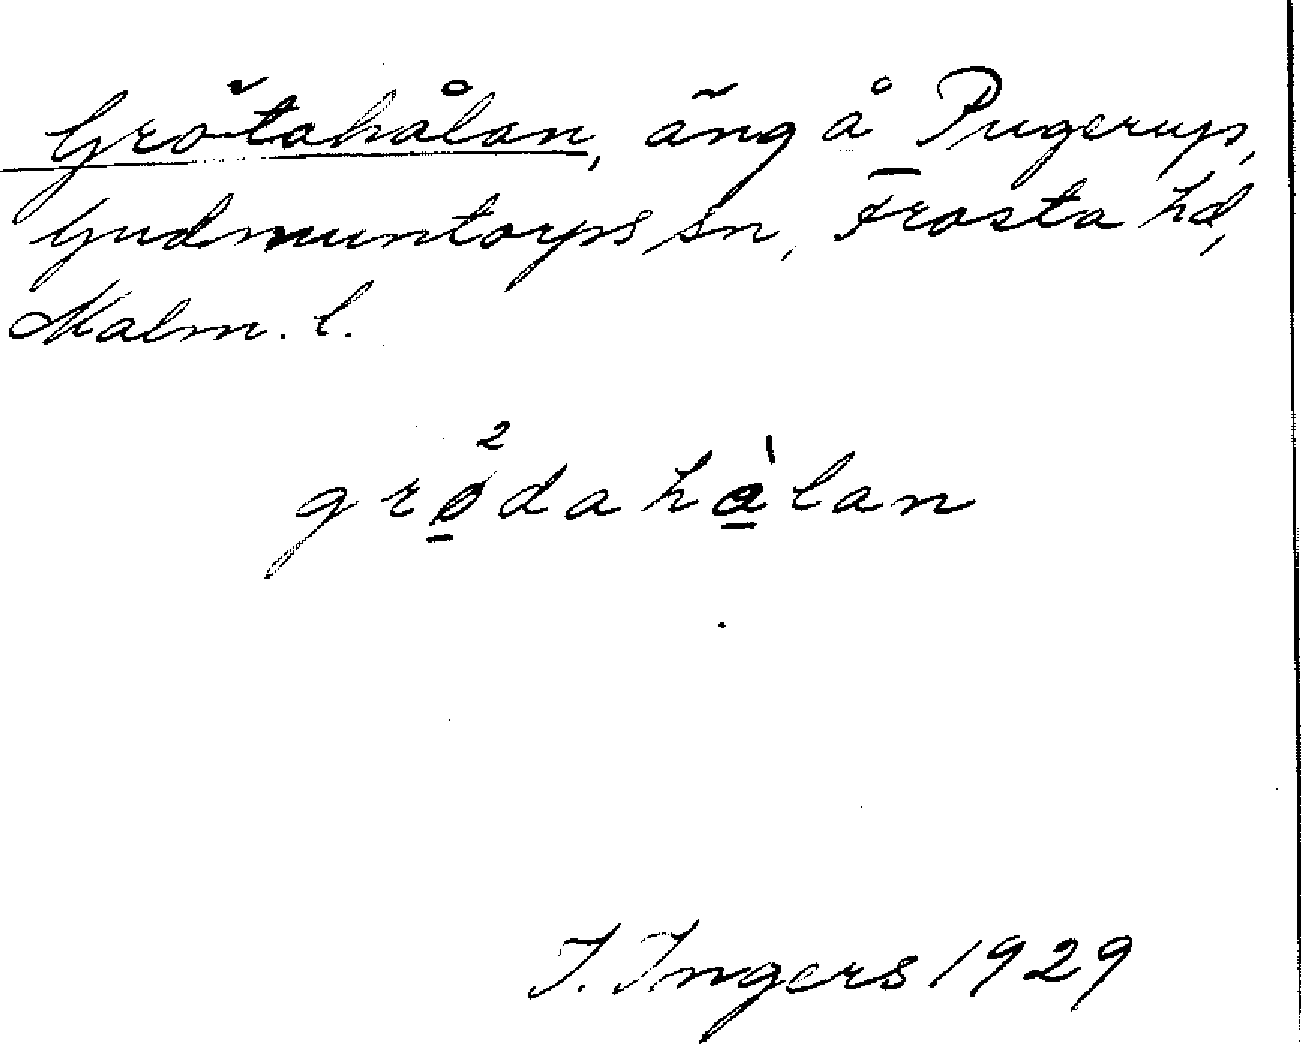 Grötahålan, äng å Pugerup,
Gudmuntorps sn, Frosta hd,
Malm. l.
2
grø̱dahà̱lan
I. Ingers 1929